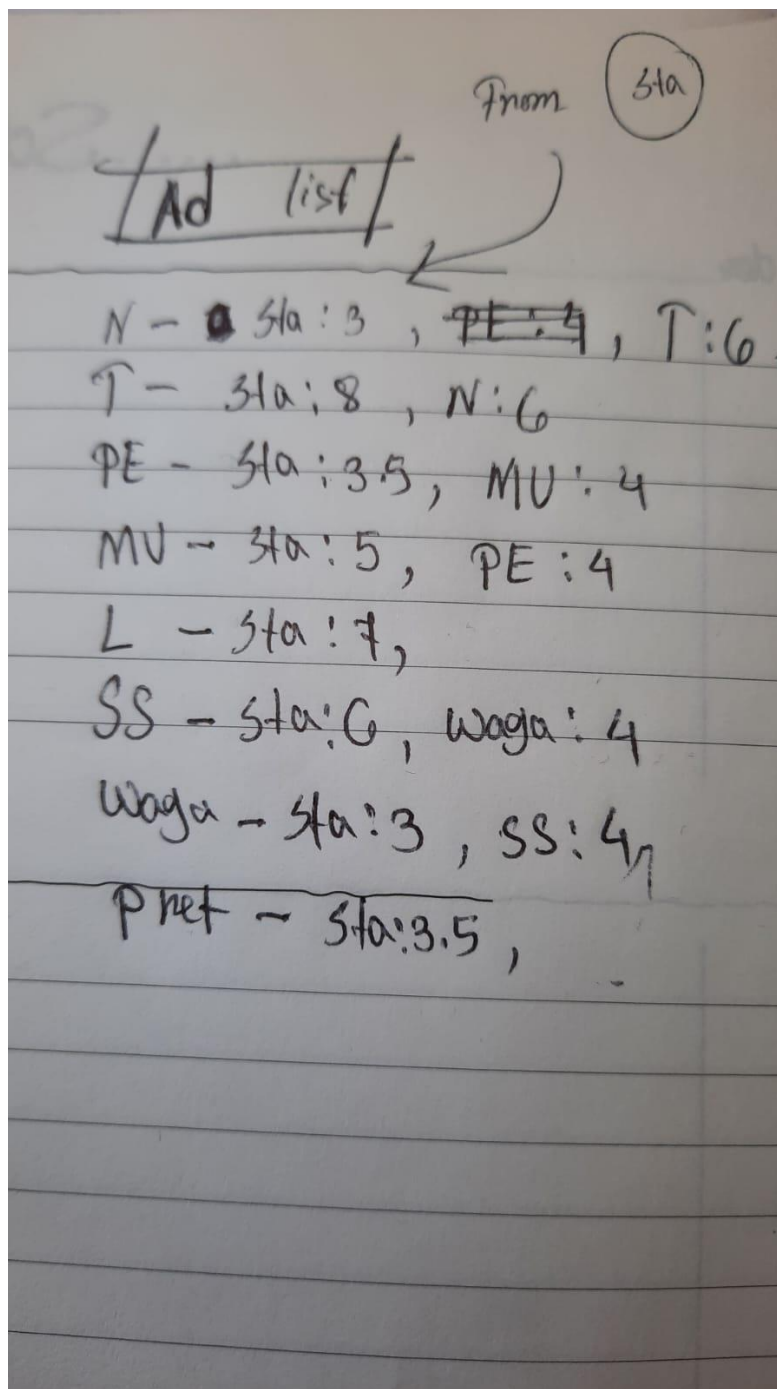 From Sta
Ad list
N - Sta : 3 , PE : 4 , T : 6
T - Sta : 8 , N : 6
PE - Sta : 3.5 , MU : 4
MU - Sta : 5 , PE : 4
L - Sta : 7 ,
SS - Sta : 6 , Waga : 4
Waga - Sta : 3 , SS : 4 ,
Pret - Sta : 3.5 ,